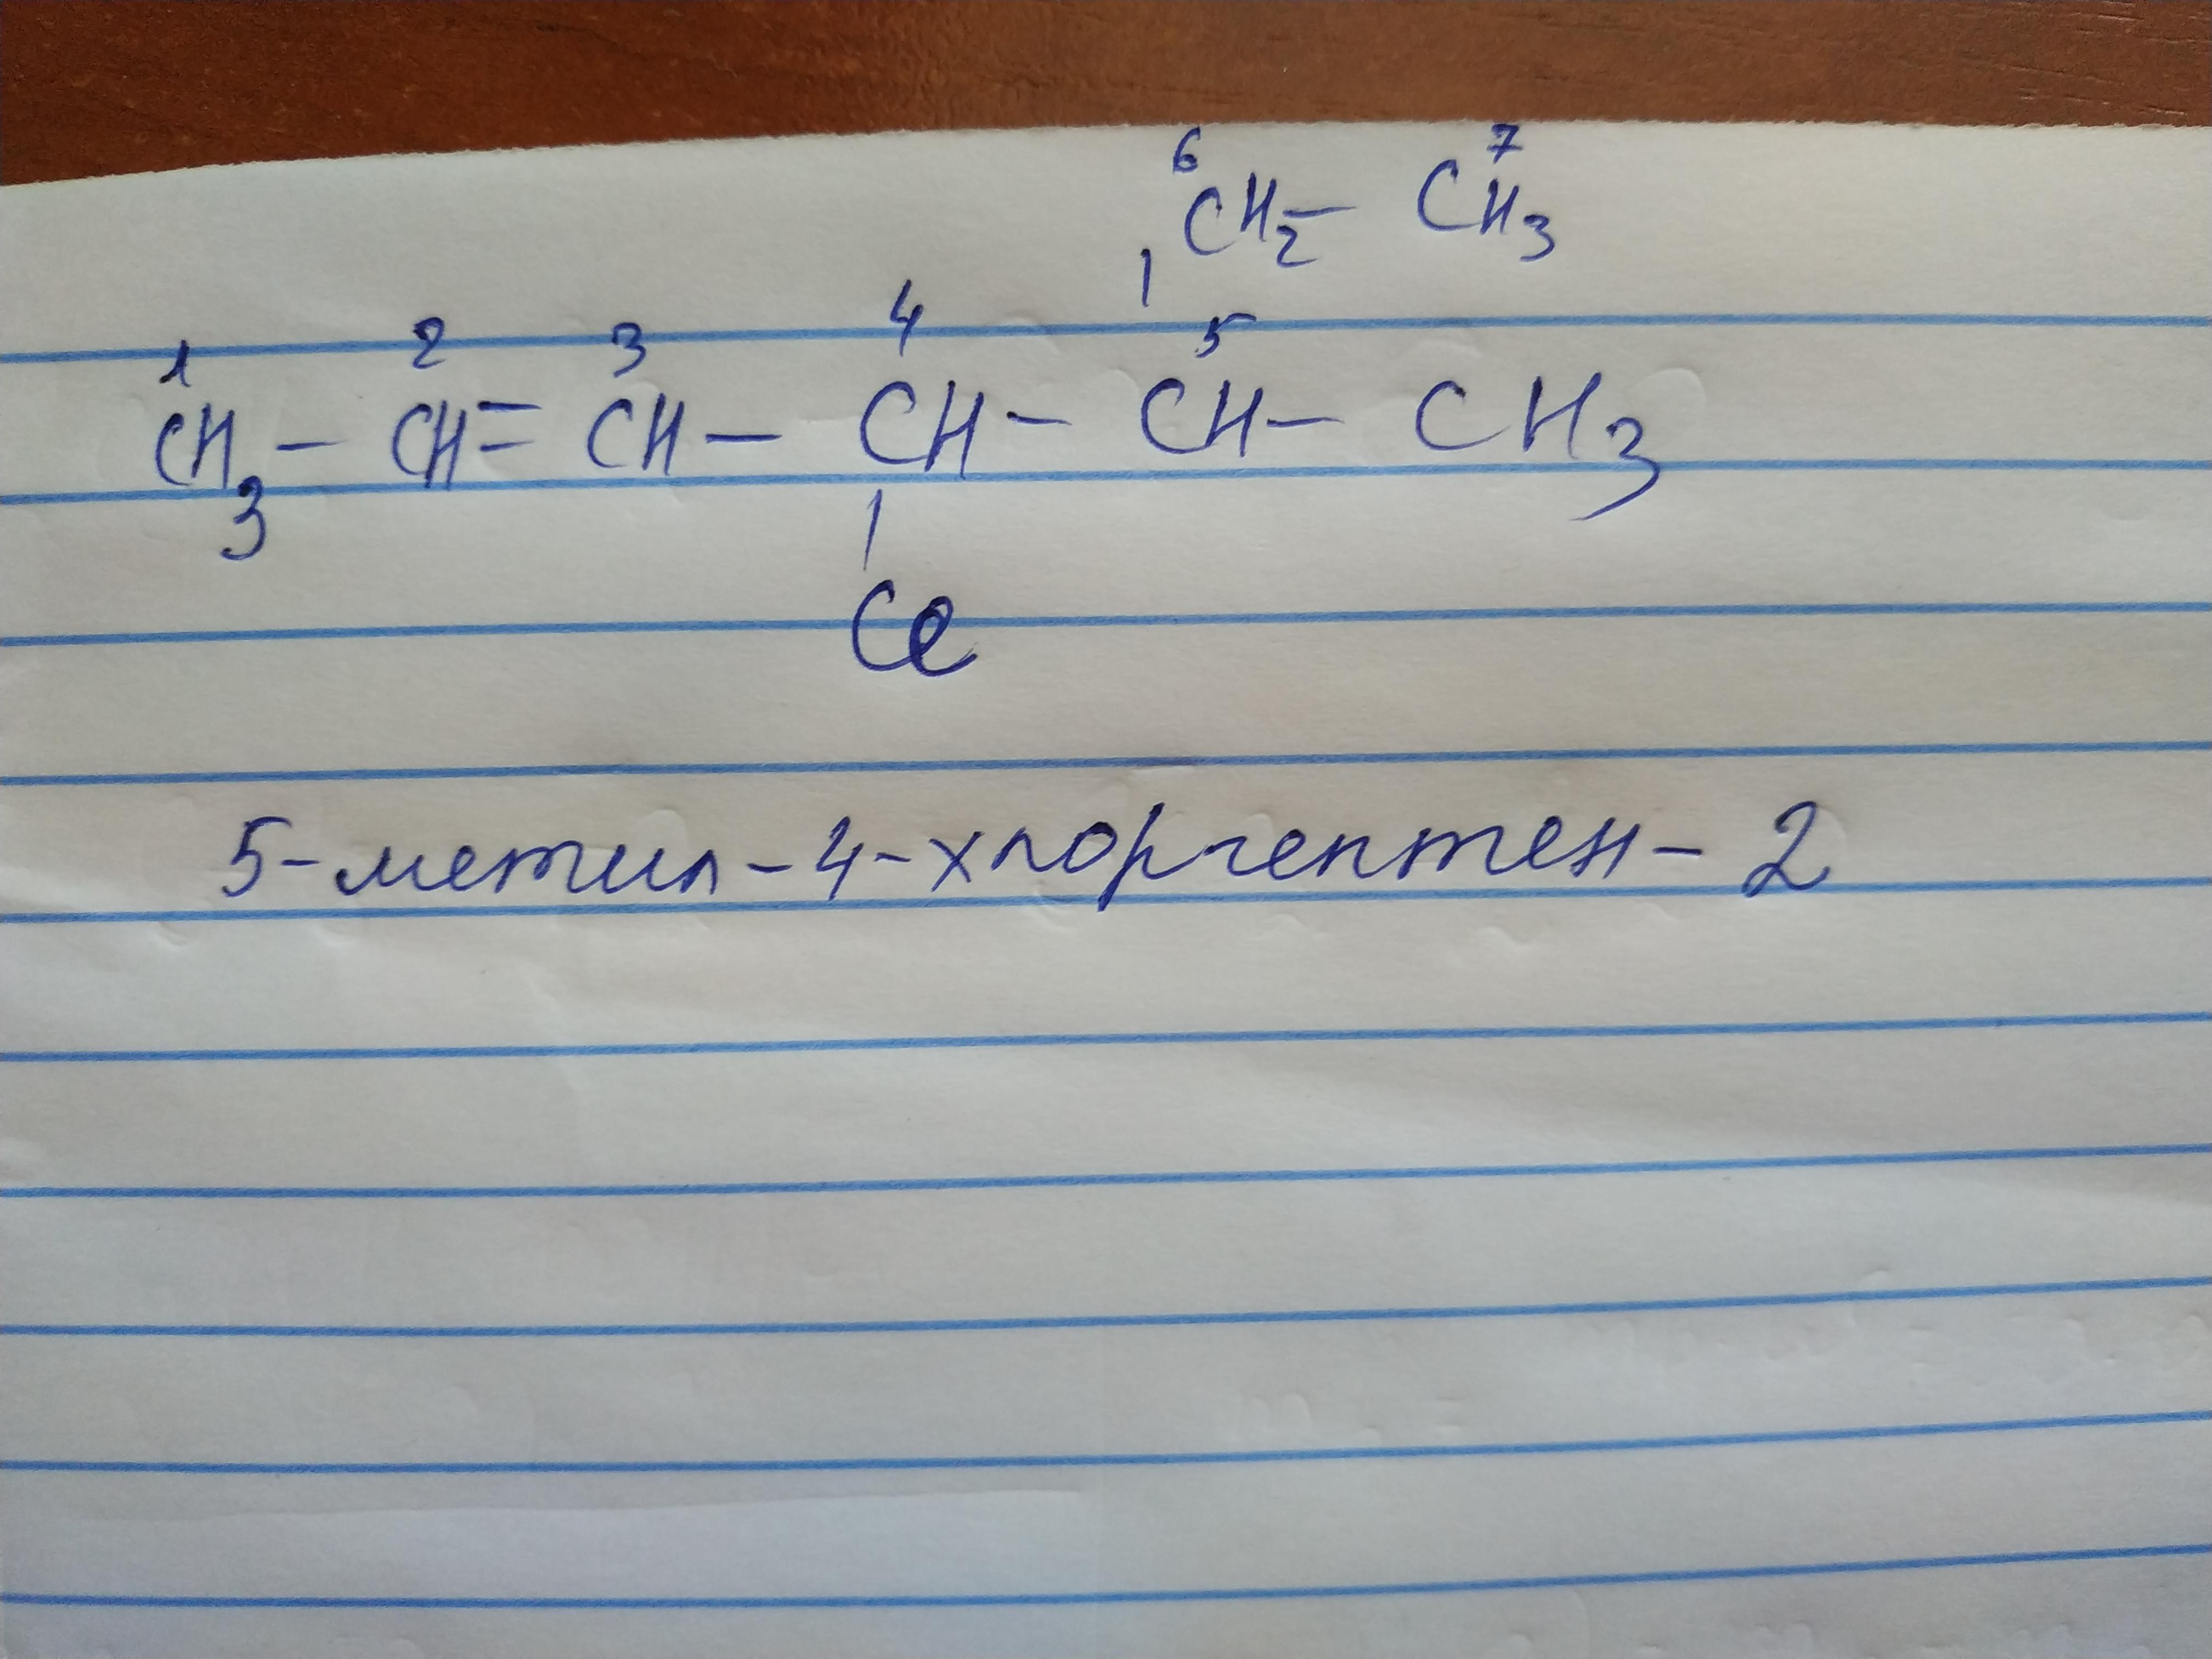 6 7
CH₂ – CH₃
1 2 3 4 | 5
CH₃ – CH = CH – CH – CH – CH₃
|
Cl
5-метил-4-хлоргептен-2